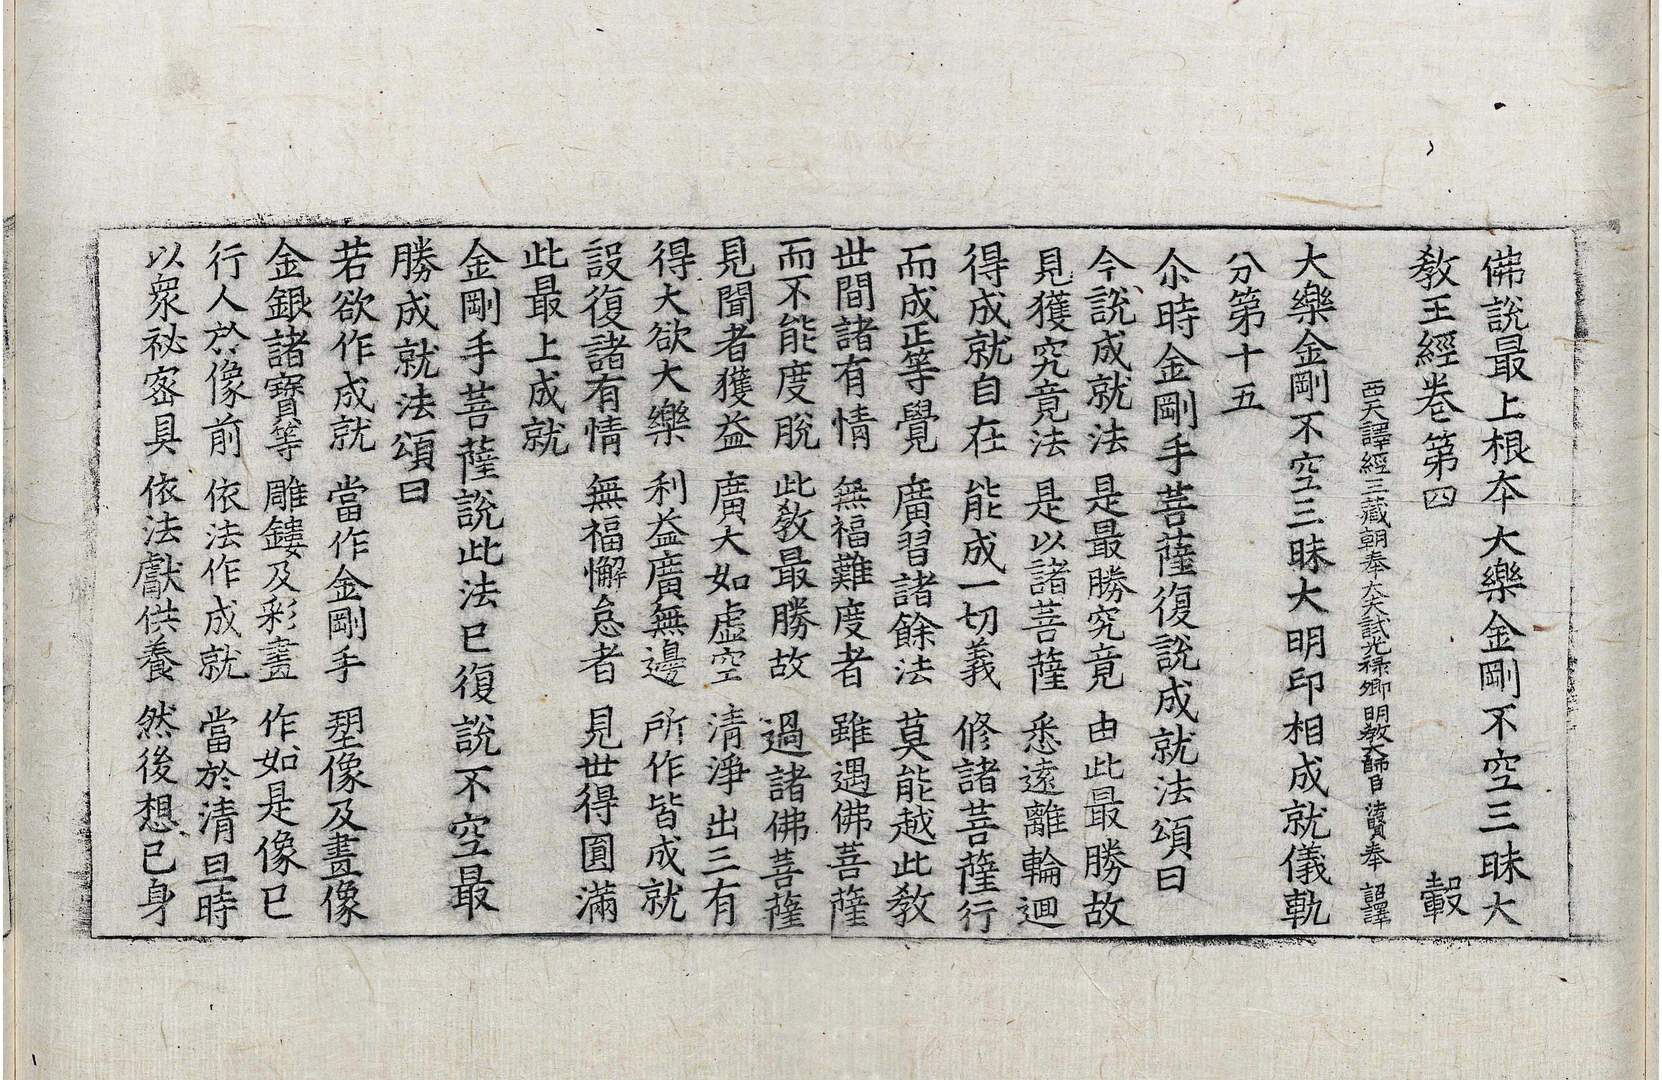 佛說最上根夲大樂金剛不空三昧大
敎王經卷第四 轂
西天譯經三藏朝奉大夫試光祿卿明敎大師臣法賢奉 詔譯
大樂金剛不空三昧大明印相成就儀軌
分第十五
尒時金剛手菩薩復說成就法頌曰
今說成就法 是最勝究竟 由此最勝故
見獲究竟法 是以諸菩薩 悉遠離輪迴
得成就自在 能成一切義 修諸菩薩行
而成正等覺 廣習諸餘法 莫能越此敎
世間諸有情 無福難度者 雖遇佛菩薩
而不能度脫 此敎最勝故 過諸佛菩薩
見聞者獲益 廣大如虛空 清淨出三有
得大欲大樂 利益廣無邊 所作皆成就
設復諸有情 無福懈怠者 見世得圓滿
此最上成就
金剛手菩薩說此法已復說不空最
勝成就法頌曰
若欲作成就 當作金剛手 塑像及畫像
金銀諸寶等 雕鏤及彩畫 作如是像已
行人於像前 依法作成就 當於清旦時
以衆祕密具 依法獻供養 然後想已身